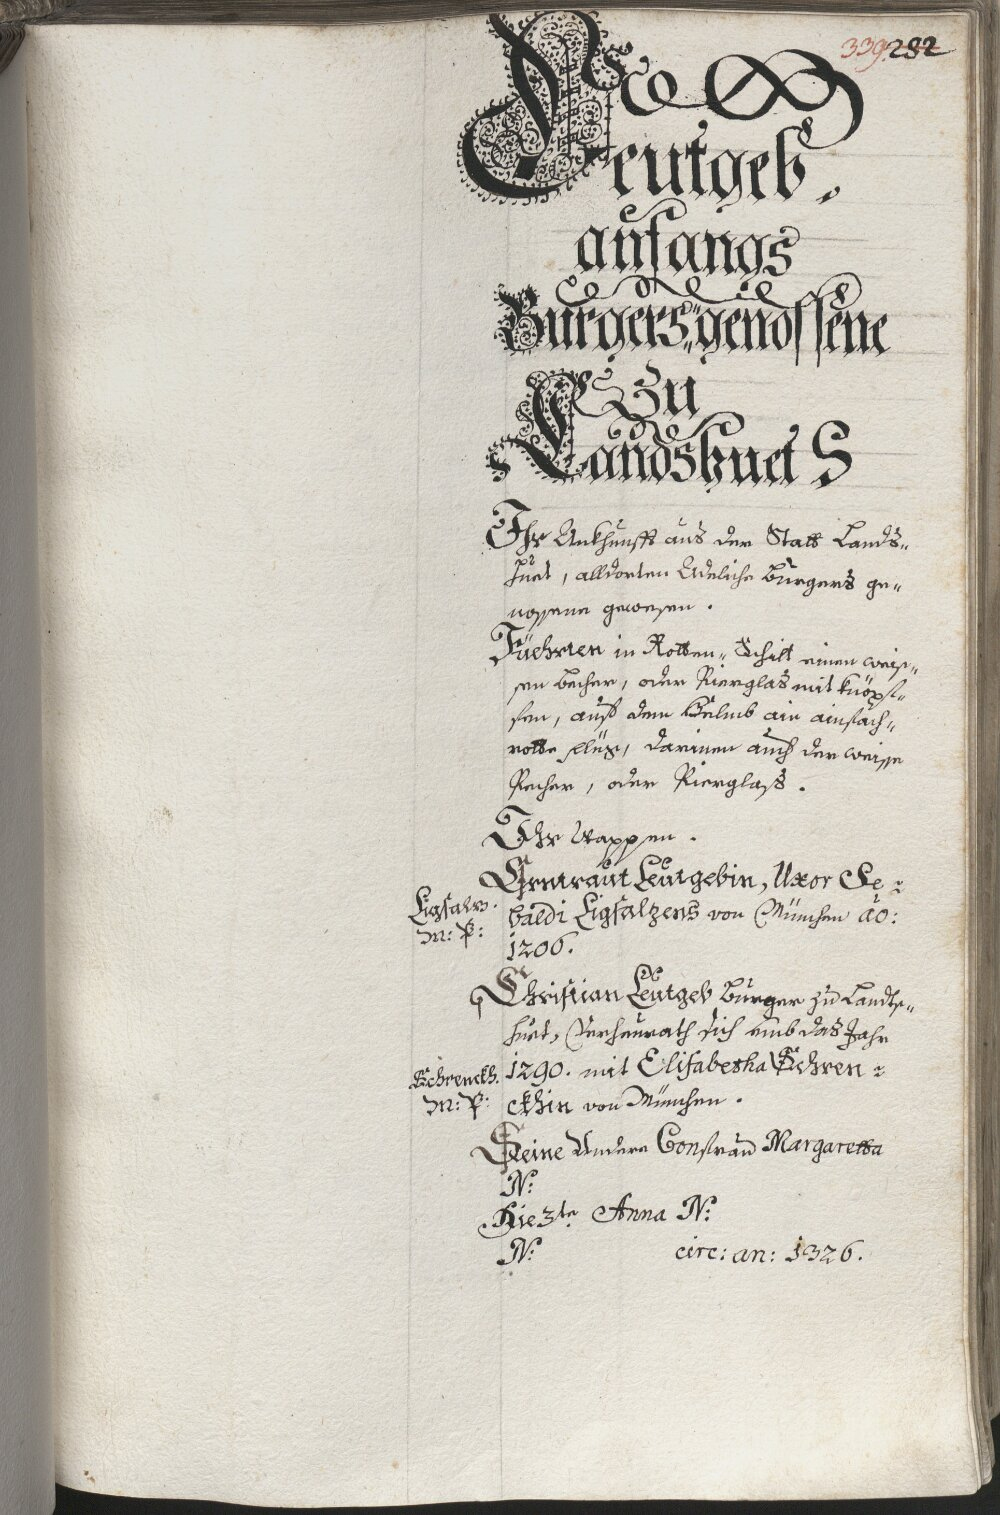 339. 282
Leutgeb,
anfangs
Burgers"genossene
Zu
Landshuet
Ihr Ankhunfft aus der Statt Lands"
huet, alldorten Adeliche Burgers ge"
nossene gewesen.
Füehrten in Rotten" Schilt einen weis"
sen becher, oder Bierglas mit knöpf"
fen, auff dem Helmb ain ainfach"
rotte flüg, darinen auch der weisse
Becher, oder Bierglaß.
Ihr Wappen.
Gertraut Leutgebin, Uxor Se=
baldi Ligsalzens von München ao:
1206.
Ligsalz.
M: P:
Christian Leutgeb Burger zu Landts"
huet, Verheurath sich umb das Jahr
1290. mit Elisabetha Schren=
ckhin von München.
Schrenckh.
M: P:
Seine Andere Consfrau Margaretha
N:
Die 3te Anna N:
N: circ: an: 1326.